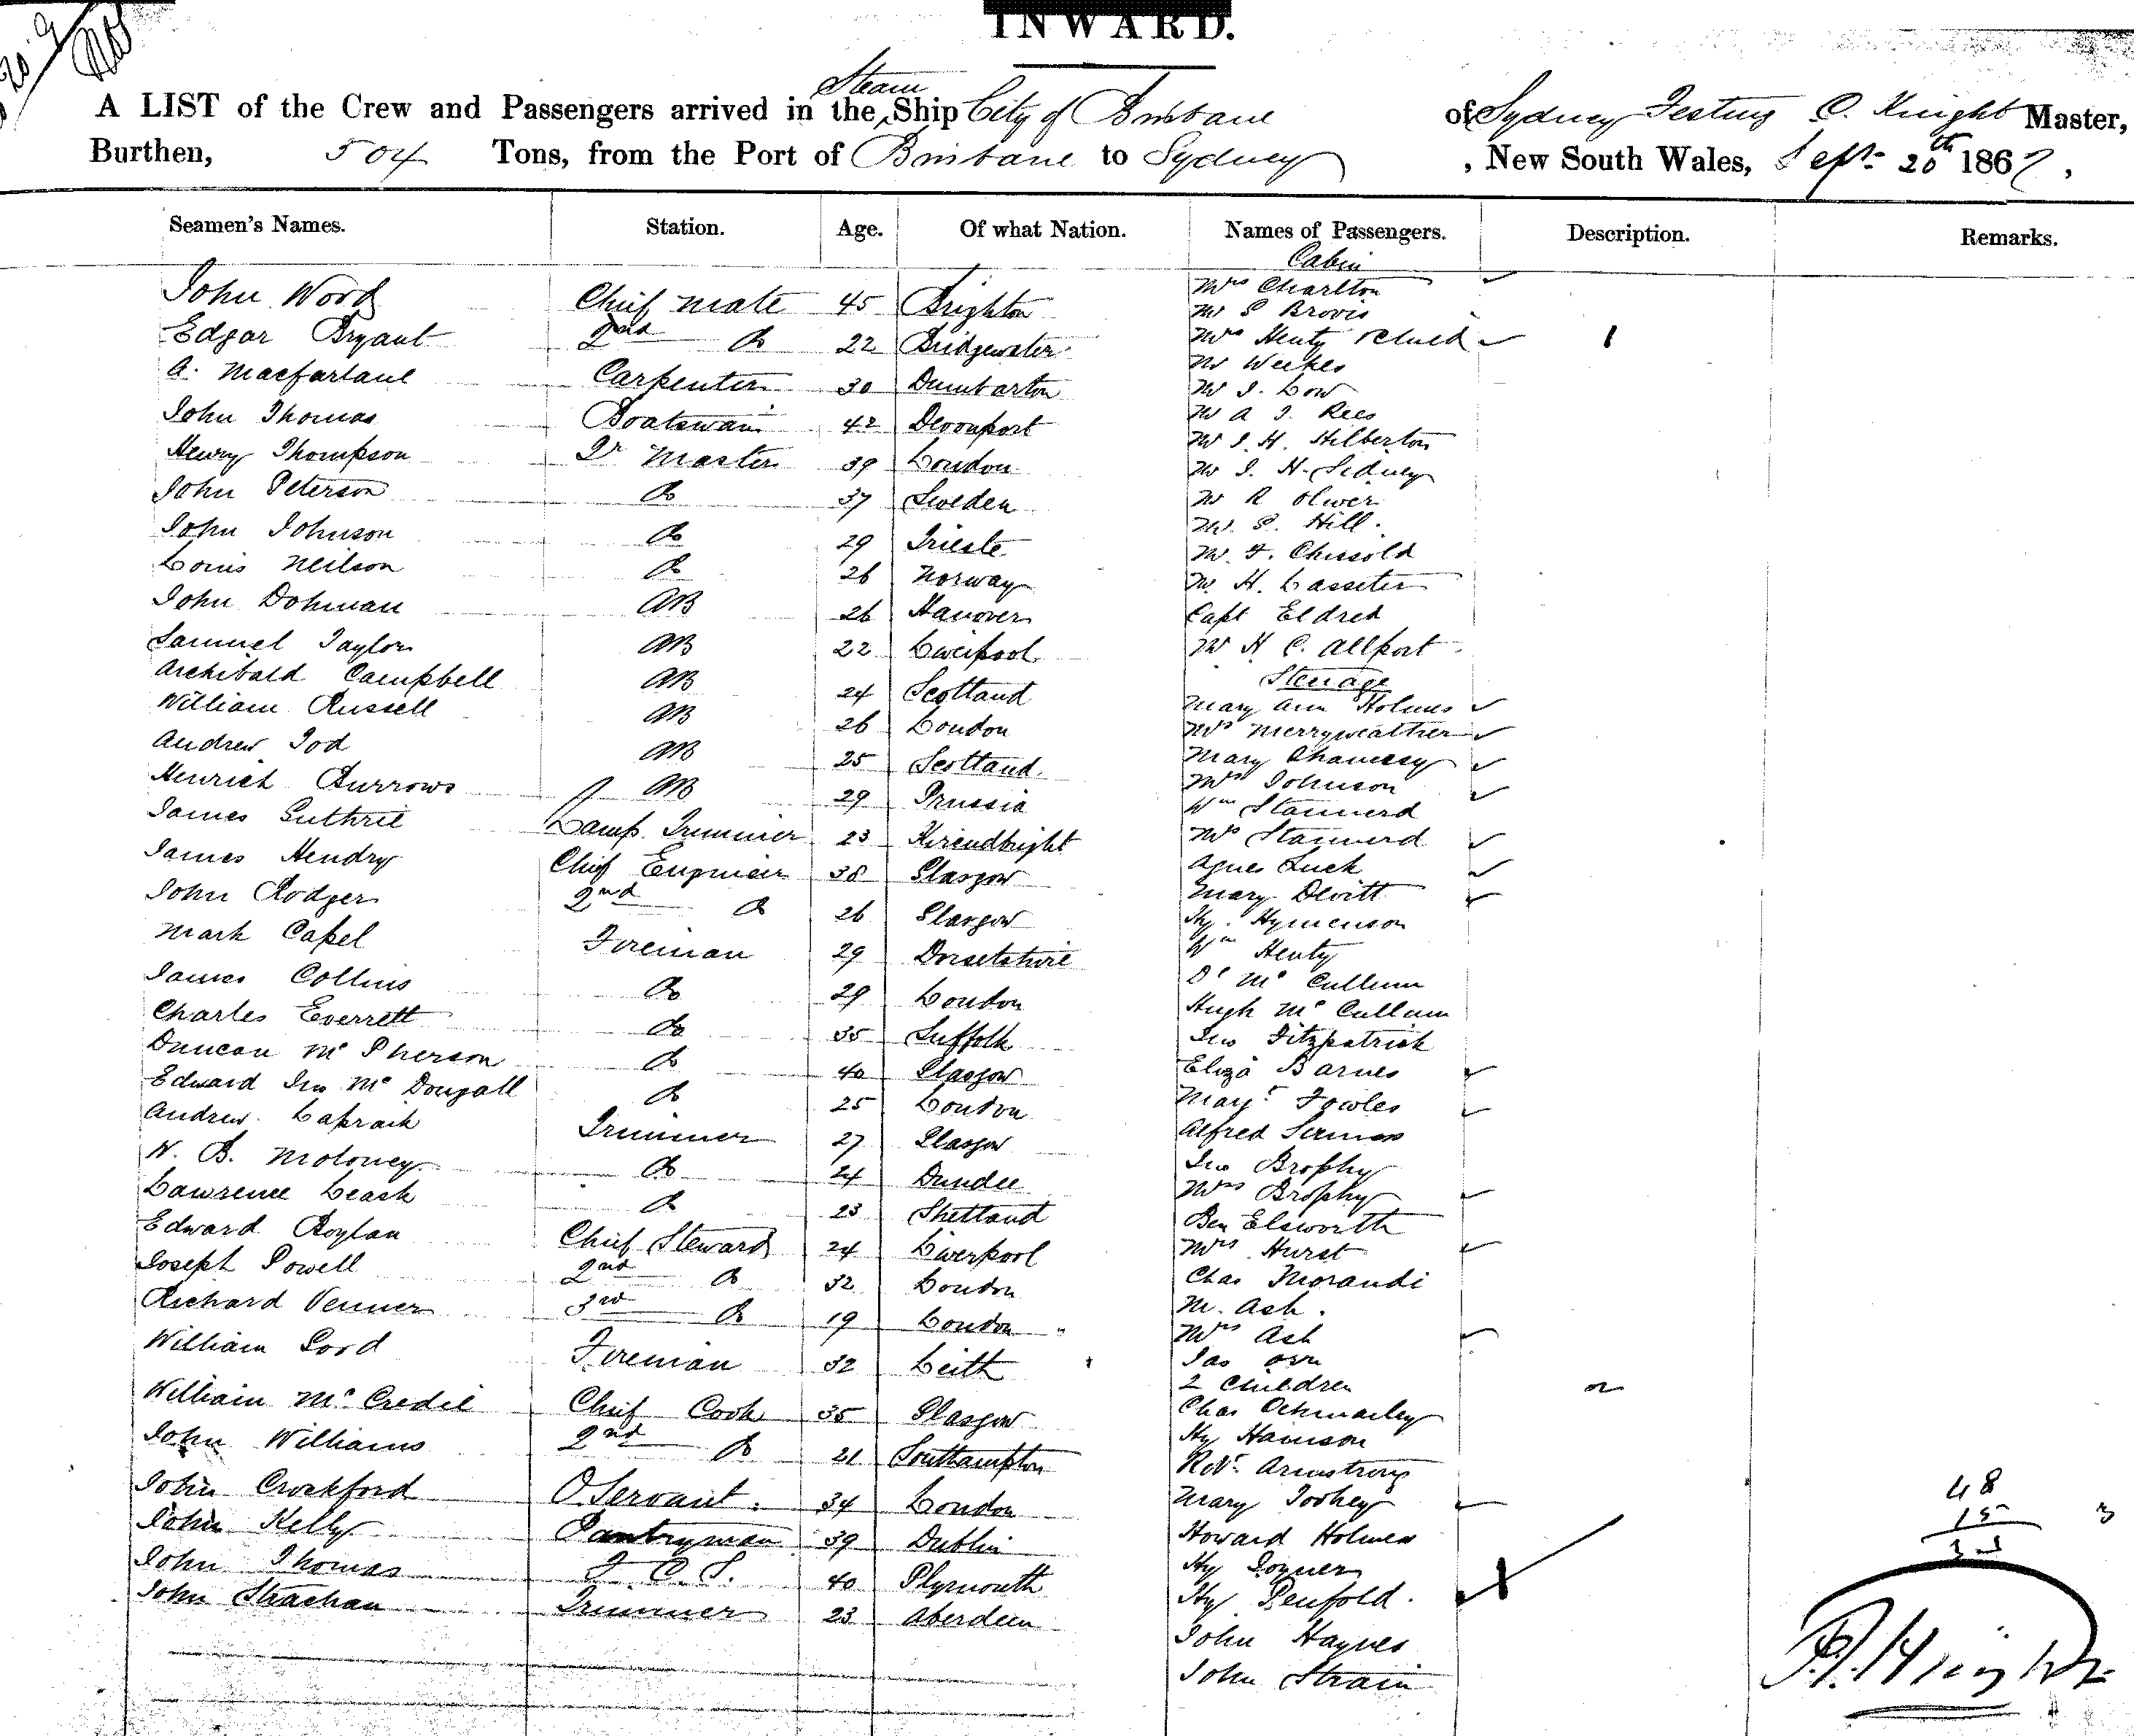 INWARD.
Steam
A LIST of the Crew and Passengers arrived in the Ship City of Brisbane of Sydney Festing C. Knight Master,
Burthen, 504 Tons, from the Port of Brisbane to Sydney, New South Wales, Sept 20th 1867,
Seamen's Names. Station. Age. Of what Nation. Names of Passengers. Description. Remarks.
Cabin
John Wood Chief Mate 45 Brighton Mrs Charlton
Mr S Brovis
Edgar Bryant 2nd Do 22 Bridgewater Mrs Henty & child 1
Mr Weekes
A. Macfarlane Carpenter 30 Dumbarton Mr J. Low
John Thomas Boatswain 42 Devonport Mr A J. Rees
Mr J. H. Hilberton
Henry Thompson Qr Master 39 London Mr J. H. Sidney
John Peterson Do 37 Sweden Mr R Oliver
Mr. S. Hill.
John Johnson Do 29 Trieste Mr. F. Chissold
Louis Neilson Do 26 Norway Mr. H. Lasseter
John Dohman AB 26 Hanover Capt Eldred
Samuel Taylor AB 22 Liverpool Mr H C. Allport
Steerage
Archibald Campbell AB 24 Scotland Mary Ann Holmes
William Russell AB 26 London Mrs Merryweather
Andrew Tod AB 25 Scotland. Mary
Mrs Johnson
Henrich Burrows AB 29 Prussia Wm Stannerd
James Guthrie Lamp Trimmer 23 Kircudbright Mrs Stannerd
James Hendry Chief Engineer 38 Glasgow Agnes Luck
Mary Devitt
John Rodger 2nd Do 26 Glasgow Hy. Hymenson
Mark Capel Fireman 29 Dorsetshire Wm Henty
Dd Mc Cullum
James Collins Do 29 London Hugh Mc Callum
Charles Everrett Do 35 Suffolk Jno Fitzpatrick
Duncan McPherson Do 40 Glasgow Eliza Barnes
Edward Jno McDougall Do 25 London Margt Fowles
Andrew Lapraik Trimmer 27 Glasgow Alfred
Jno Brophy
W. B. Moloney Do 24 Dundee Mrs Brophy
Lawrence Leask Do 23 Shetland Ben Elsworth
Edward Boylan Chief Steward 24 Liverpool Mrs Hurst
Joseph Powell 2nd Do 32 London Chas Morandi
M. Ash.
Richard Venner 3rd Do 19 London " Mrs Ash
William Lord Fireman 32 Leith Jas Orr
2 Children 2
William McCredie Chief Cook 35 Glasgow Chas
Hy Harrison
John Williams 2nd Do 21 Southampton Robt. Armstrong
John Crockford O. Servant. 34 London Mary Toohey
John Kelly Pantryman 39 Dublin Howard Holmes
John Thomas F. C. S. 40 Plymouth Hy Joyner
John Strachan Trimmer 23 Aberdeen Hy Penfold.
John Haynes
John Strain
48
15 3
33